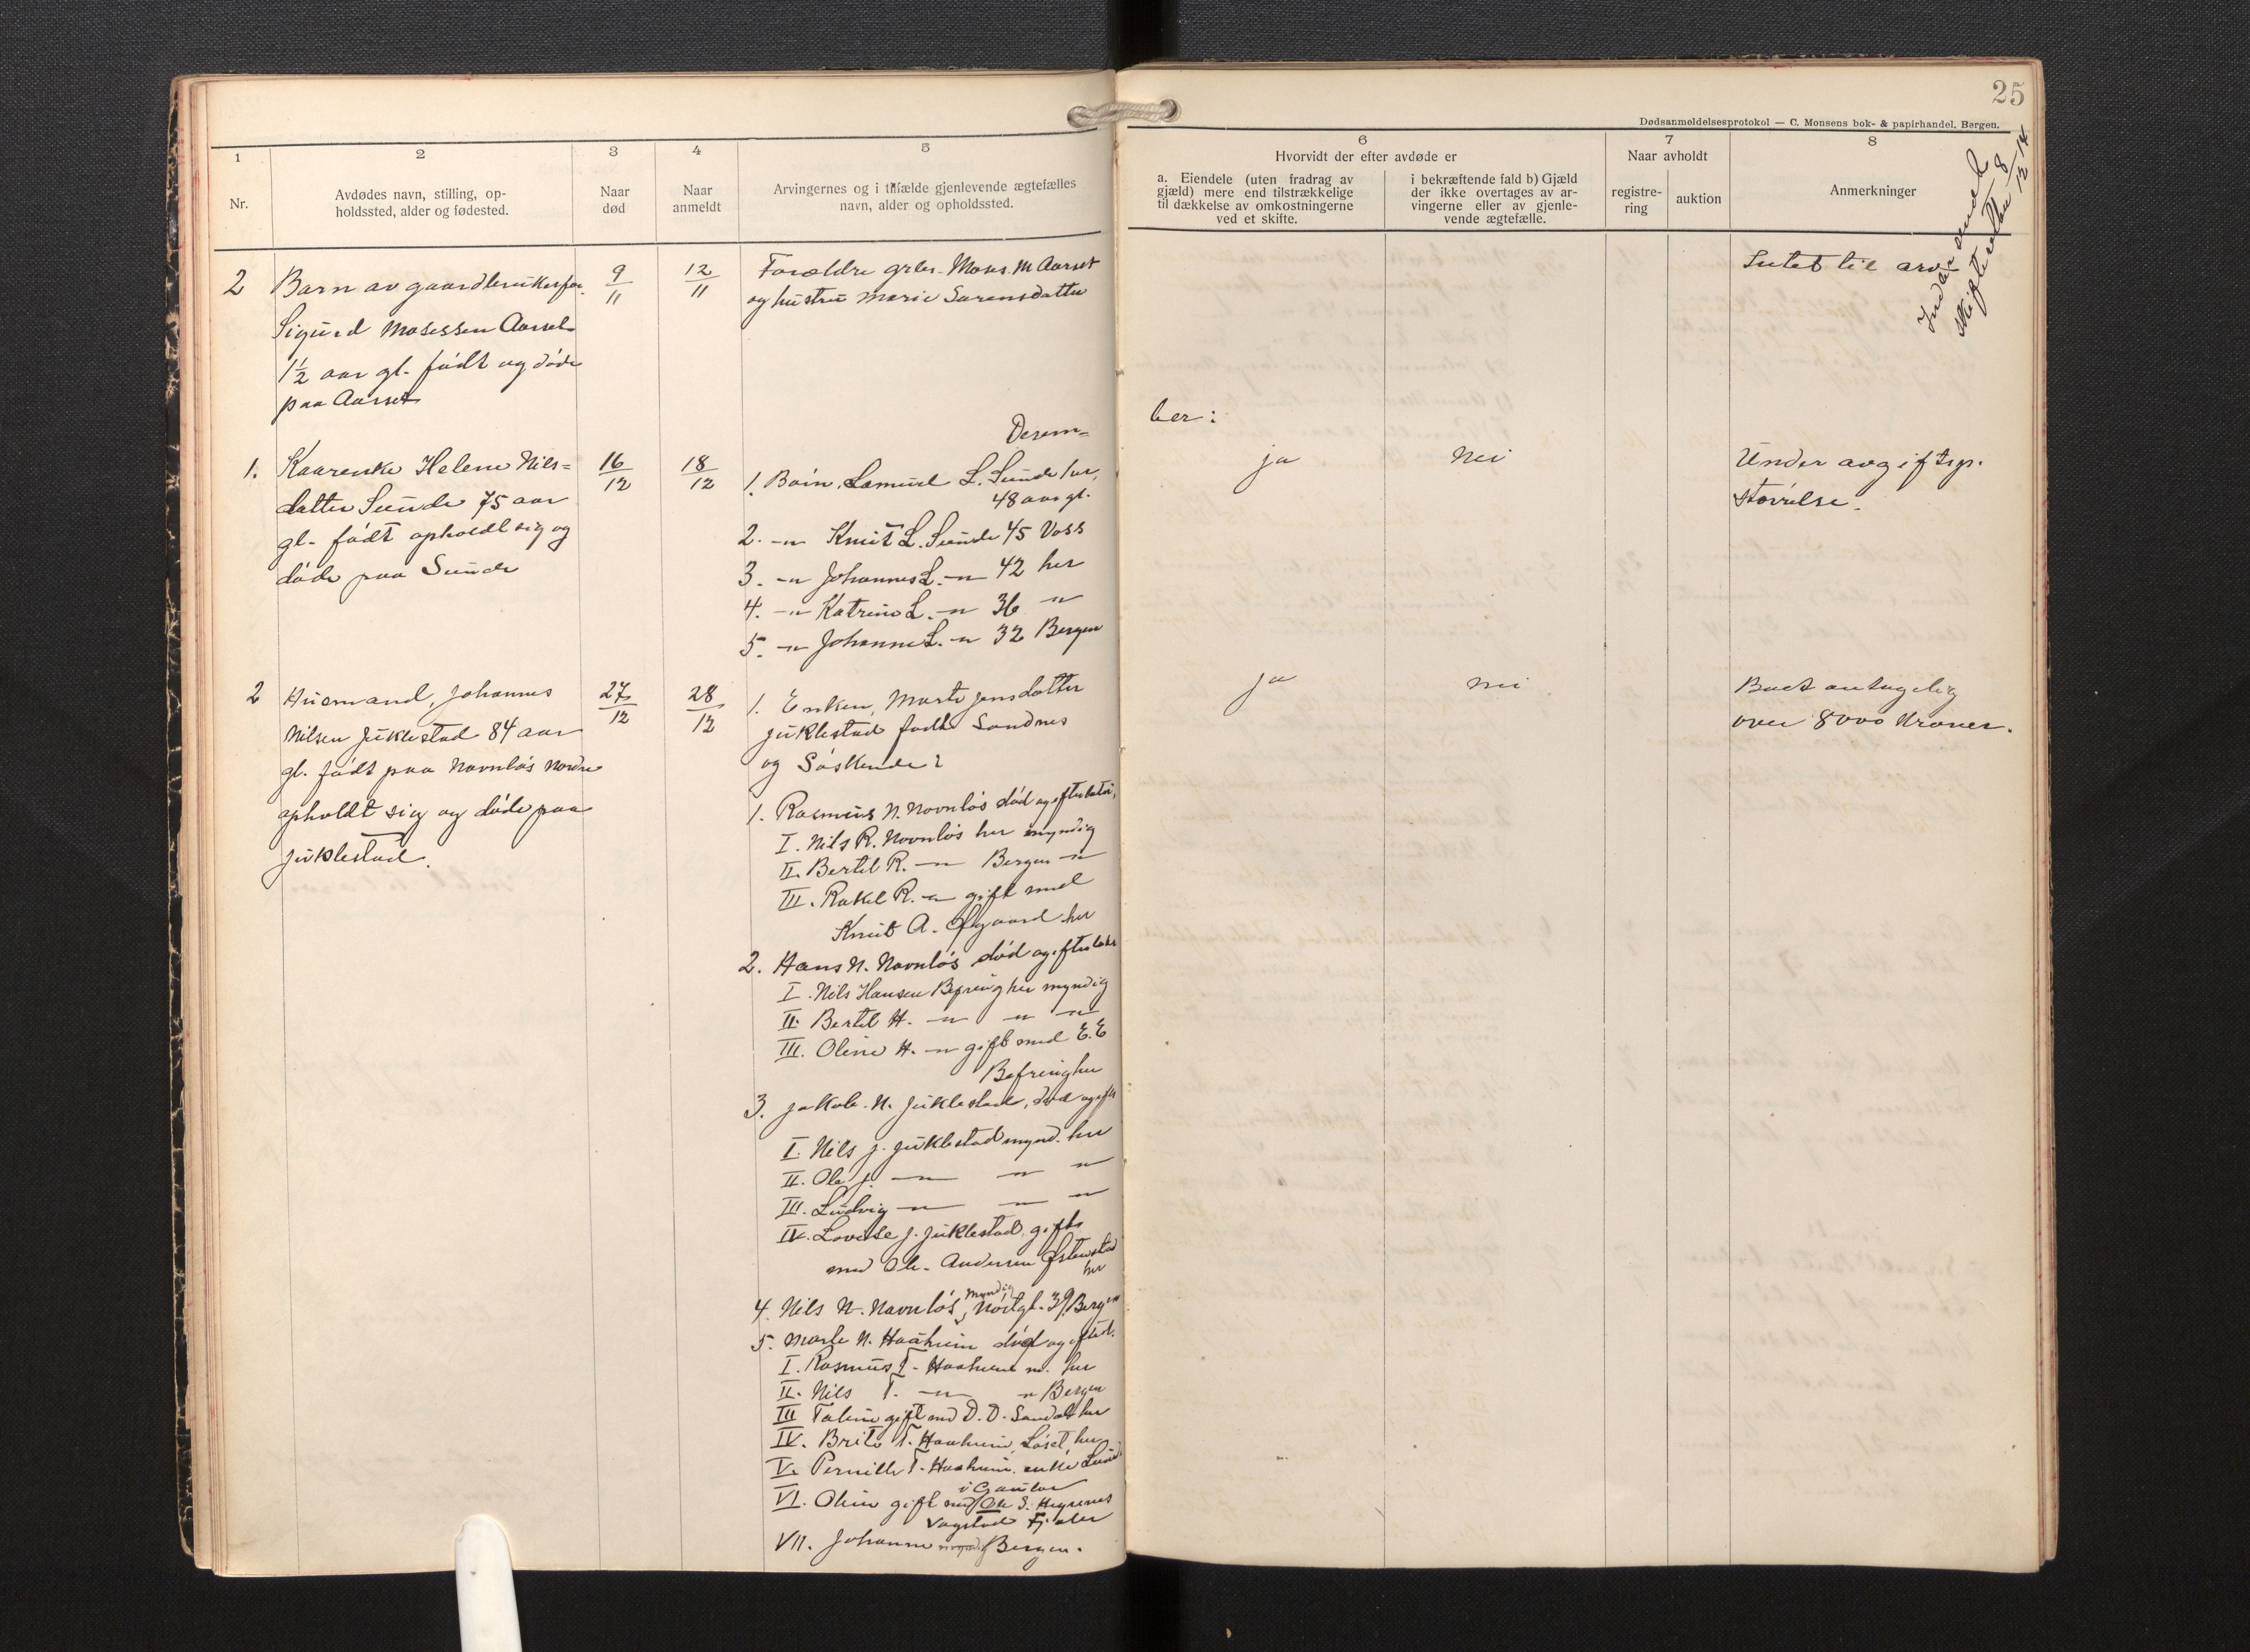 25
Dødsanmeldelsesprotokol — C. Monsens bok- & papirhandel, Bergen.
1
2
3
4
5
6
7
8
Nr.
Avdødes navn, stilling, op-
holdssted, alder og fødested.
Naar
død
Naar
anmeldt
Arvingernes og i tilfælde gjenlevende ægtefælles
navn, alder og opholdssted.
Hvorvidt der efter avdøde er
a. Eiendele (uten fradrag av
gjæld) mere end tilstrækkelige
til dækkelse av omkostningerne
ved et skifte.
i bekræftende fald b) Gjæld
der ikke overtages av ar-
vingerne eller av gjenle-
vende ægtefælle.
Naar avholdt
registre-
ring
auktion
Anmerkninger
Indberendt
skifteretten 8/12 14
2
Barn av gaardbruker
Sigurd Mosessen Aarset
1½ aar gl. født og døde
paa Aarset
9/11
12/11
Forældre grbr. Moses M Aarset
og hustru Marie Sørensdatter
Intet til arv
Desem-
ber:
1.
Kaarenke Helene Nils=
datter Sunde 75 aar
gl. født opholdt sig og
døde paa Sunde
16/12
18/12
1. Barn, Samuel L. Sunde her,
48 aar gl.
2. -"- Knut L. Sunde 45 Voss
3. -"- Johannes L. -"- 42 her
4. -"- Katrine L. -"- 36 -"-
5. -"- Johanne L. -"- 32 Bergen
ja
Nei
Under avgiftsp.
størrelse.
2
Husmand, Johannes
Nilsen Juklestad 84 aar
gl. født paa Navnløs Nordre
opholdt sig og døde paa
Juklestad.
27/12
28/12
1. Enken, Marte Jensdatter
Juklestad født Sandnes
og Søskende:
ja
nei
Boet antagelig
over 8000 Kroner.
1. Rasmus N. Navnløs død og efterlatt.
I. Nils R. Navnløs her myndig
II. Bertil R. -"- Bergen -"-
III. Rakel R. -"- gift med
Knut A. Øygaard her
2. Hans N. Navnløs død og efterlatt
I. Nils Hansen Befring her myndig
II. Bertil H. -"- -"- -"-
III. Oline H. -"- gift med E. E
Befring her
3. Jakob. N. Juklestad, død og eft
I. Nils J. Juklestad mynd. her
II. Ole J. -"- -"- -"-
III. Ludvig -"- -"- -"-
IV. Lovise J. Juklestad, gift
med Ole Andersen Østenstad
her
4. Nils N. Navnløs, myndig Nøstgt. 39, Bergen
5. Marte N. Haaheim død og efterl.
I. Rasmus T. Haaheim m. her
II. Nils T. -"- -"- Bergen
III Taline gift med D. D. Sandal her
IV. Brite T. Haaheim, Løset, her
V. Pernille T. Haaheim, enke Sund
i Gaular
VI. Oline gift med Ole S. Hegrenes
Vagstad Fjaler
VII. Johanne myndig Bergen.